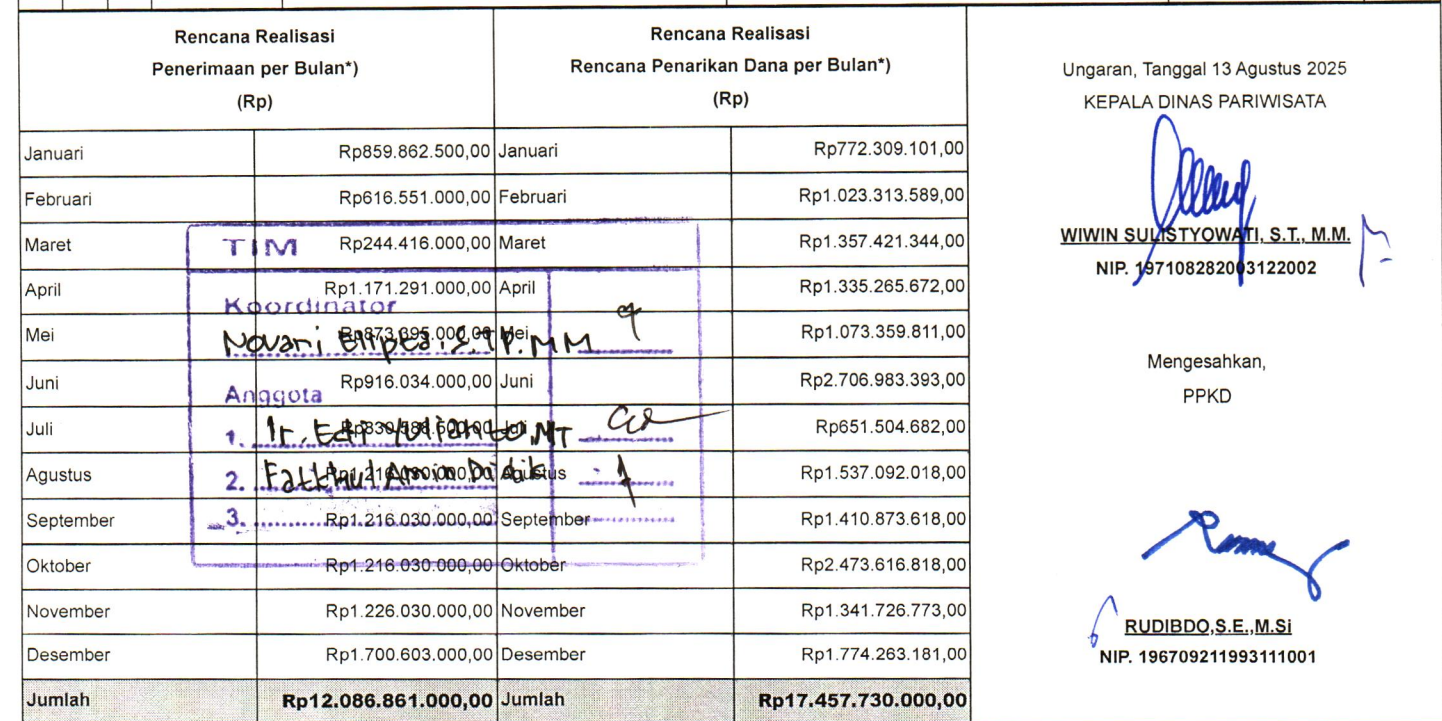 Rencana Realisasi
Penerimaan per Bulan*)
(Rp)
Rencana Realisasi
Rencana Penarikan Dana per Bulan*)
(Rp)
Januari Rp859.862.500,00 Januari Rp772.309.101,00
Februari Rp616.551.000,00 Februari Rp1.023.313.589,00
Maret Rp244.416.000,00 Maret Rp1.357.421.344,00
April Rp1.171.291.000,00 April Rp1.335.265.672,00
Mei Rp873.395.000,00 Mei Rp1.073.359.811,00
Juni Rp916.034.000,00 Juni Rp2.706.983.393,00
Juli Rp830.588.500,00 Juli Rp651.504.682,00
Agustus Rp1.216.030.000,00 Agustus Rp1.537.092.018,00
September Rp1.216.030.000,00 September Rp1.410.873.618,00
Oktober Rp1.216.030.000,00 Oktober Rp2.473.616.818,00
November Rp1.226.030.000,00 November Rp1.341.726.773,00
Desember Rp1.700.603.000,00 Desember Rp1.774.263.181,00
Jumlah Rp12.086.861.000,00 Jumlah Rp17.457.730.000,00
TIM
Koordinator
Novari
Anggota
1. Ir. Edi Yulianto, MT
2. Fatkhul Amin Didik
3.
Ungaran, Tanggal 13 Agustus 2025
KEPALA DINAS PARIWISATA
WIWIN SULISTYOWATI, S.T., M.M.
NIP. 197108282003122002
Mengesahkan,
PPKD
RUDIBDO,S.E.,M.Si
NIP. 196709211993111001